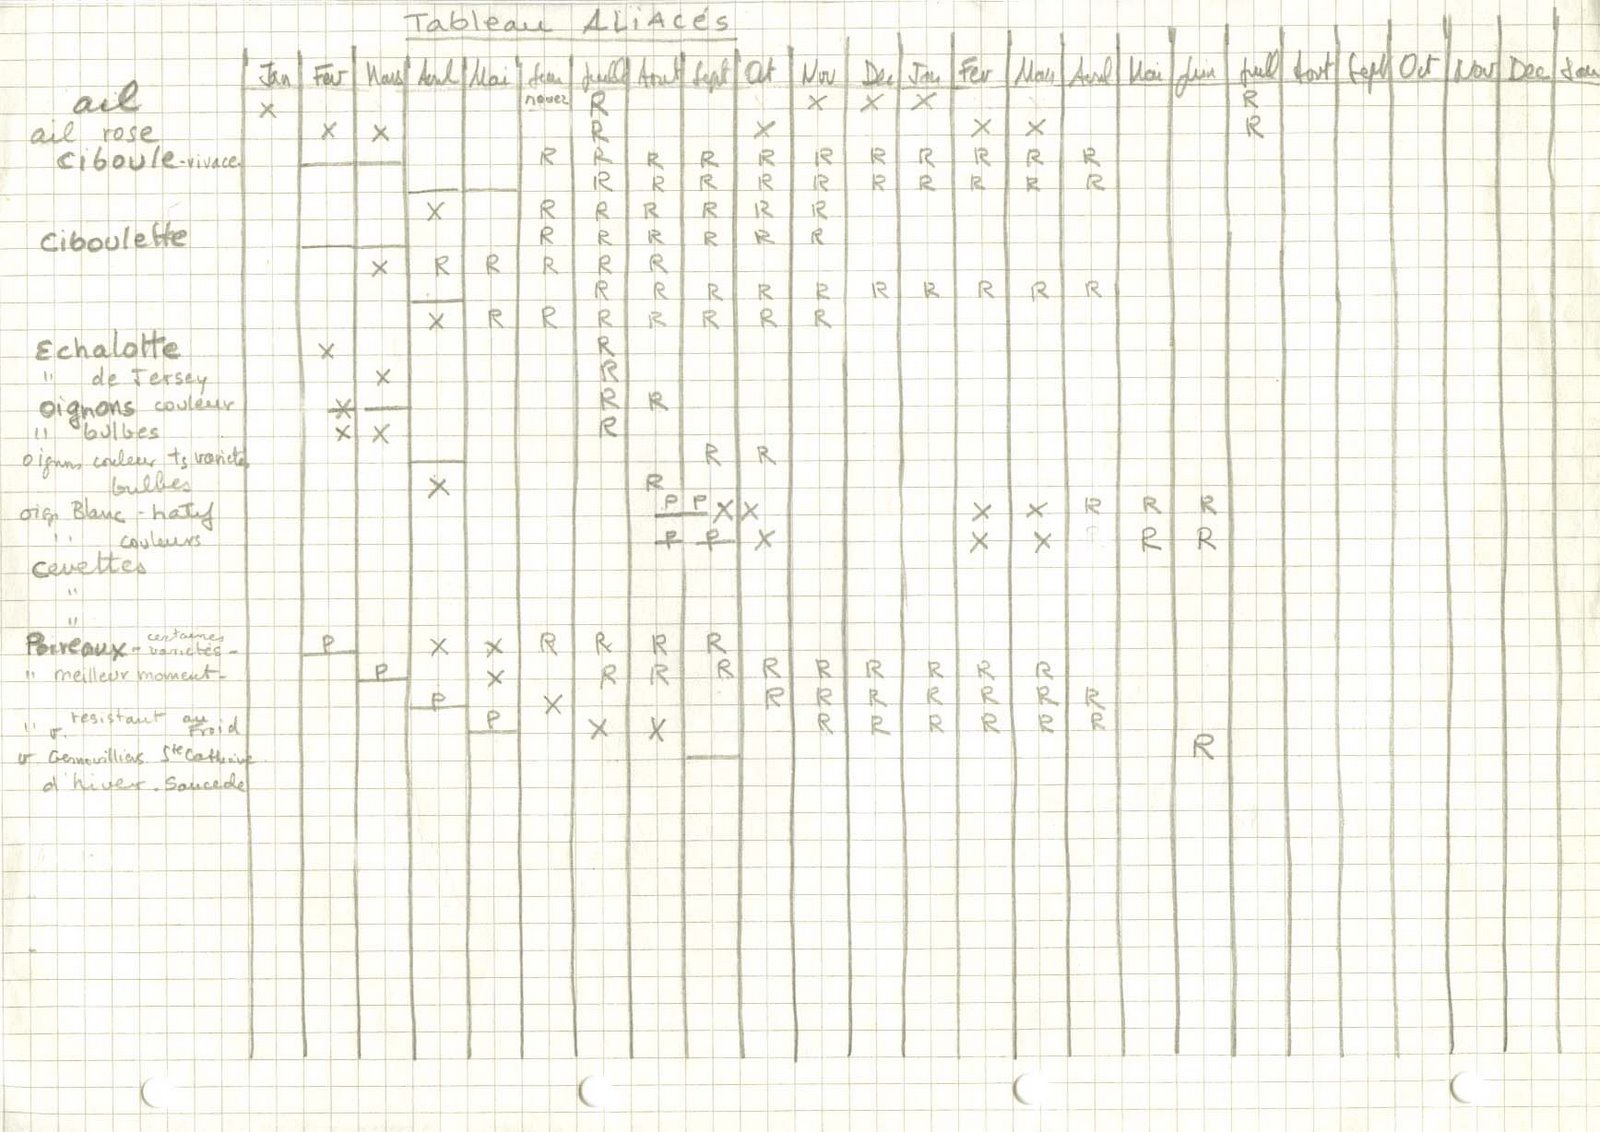 Tableau ALiAcés
Jan Fev Mars Avril Mai Juin Juill Aout Sept Oct Nov Dec Jan Fev Mars Avril Mai Juin Juill Aout Sept Oct Nov Dec Jan
ail X nouez R X X X R
ail rose X X R X X X R
Ciboule-vivace R R R R R R R R R R R
R R R R R R R R R R
X R R R R R R
Ciboulette R R R R R R
X R R R R R
R R R R R R R R R R
X R R R R R R R
Echalotte X R
" de Jersey X R
oignons couleur X R R
" bulbes X X R
oignons couleur ts varietés R R
bulbes X R
oign Blanc - hatif P P X X X X R R R
" couleurs P P X X X R R
Cevettes
"
"
Poireaux - certaines varietés - P X X R R R R
" meilleur moment - P X R R R R R R R R R
P X R R R R R R R
" v. resistant au Froid P X X R R R R R R
v Gennevilliers Ste Catherine R
d'hiver. Saucede